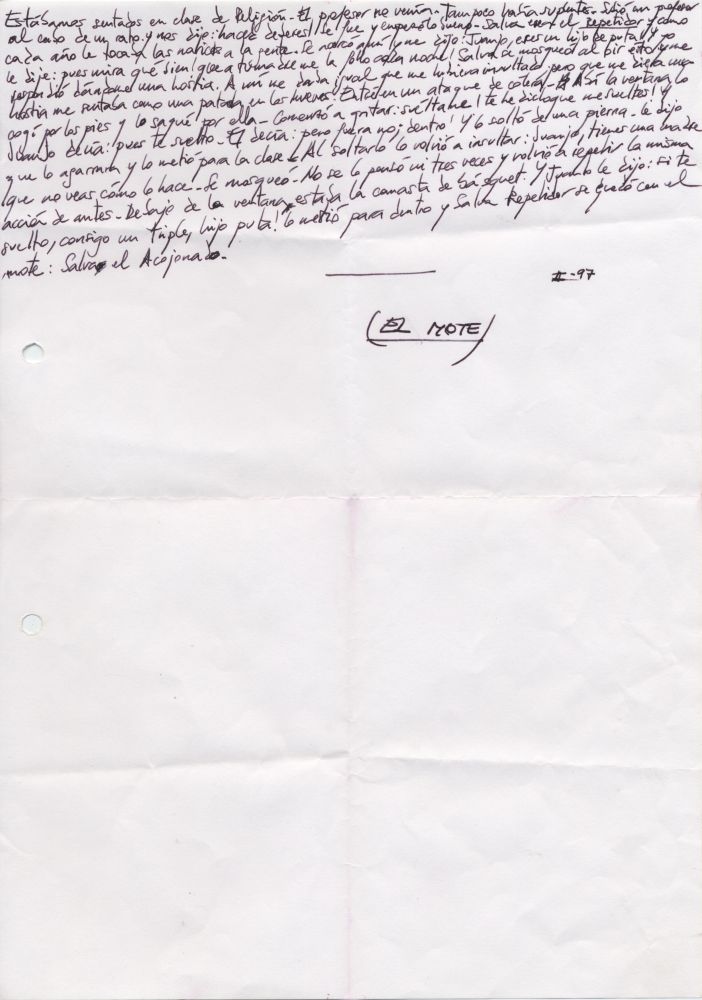 Estábamos sentados en clase de Religión. El profesor no venía. Tampoco había suplentes. Subió un profesor
al cabo de un rato y nos dijo: haced deberes! Se fue y empezó lo bueno. Salva era el repetidor y como
cada año le toca las narices a la gente. Se acercó aquí y me dijo: Juanjo, eres un hijo de puta! y yo
le dije: pues mira qué bien! que a tu madre me la follo cada noche! Salva se mosqueó al oír esto y me
respondió dándome una hostia. A mí me daba igual que me hubiera insultado, pero que me diera una
hostia me sentaba como una patada en los huevos. Entré en un ataque de cólera. Abrí la ventana, lo
cogí por los pies y lo saqué por ella. Comenzó a gritar: suéltame! te he dicho que me sueltes! y
Juanjo decía: pues te suelto. El decía: pero fuera no; dentro! Y lo soltó de una pierna. Le dijo
que lo agarrara y lo metió para la clase. Al soltarlo lo volvió a insultar: Juanjo, tienes una madre
que no veas cómo lo hace. Se mosqueó. No se lo pensó ni tres veces y volvió a repetir la misma
acción de antes. Debajo de la ventana estaba la canasta de básquet. Y Juanjo le dijo: si te
suelto, consigo un triple, hijo puta! Lo metió para dentro y Salva Repetidor se quedó con el
mote: Salva el Acojonado.
II-97
(EL MOTE)